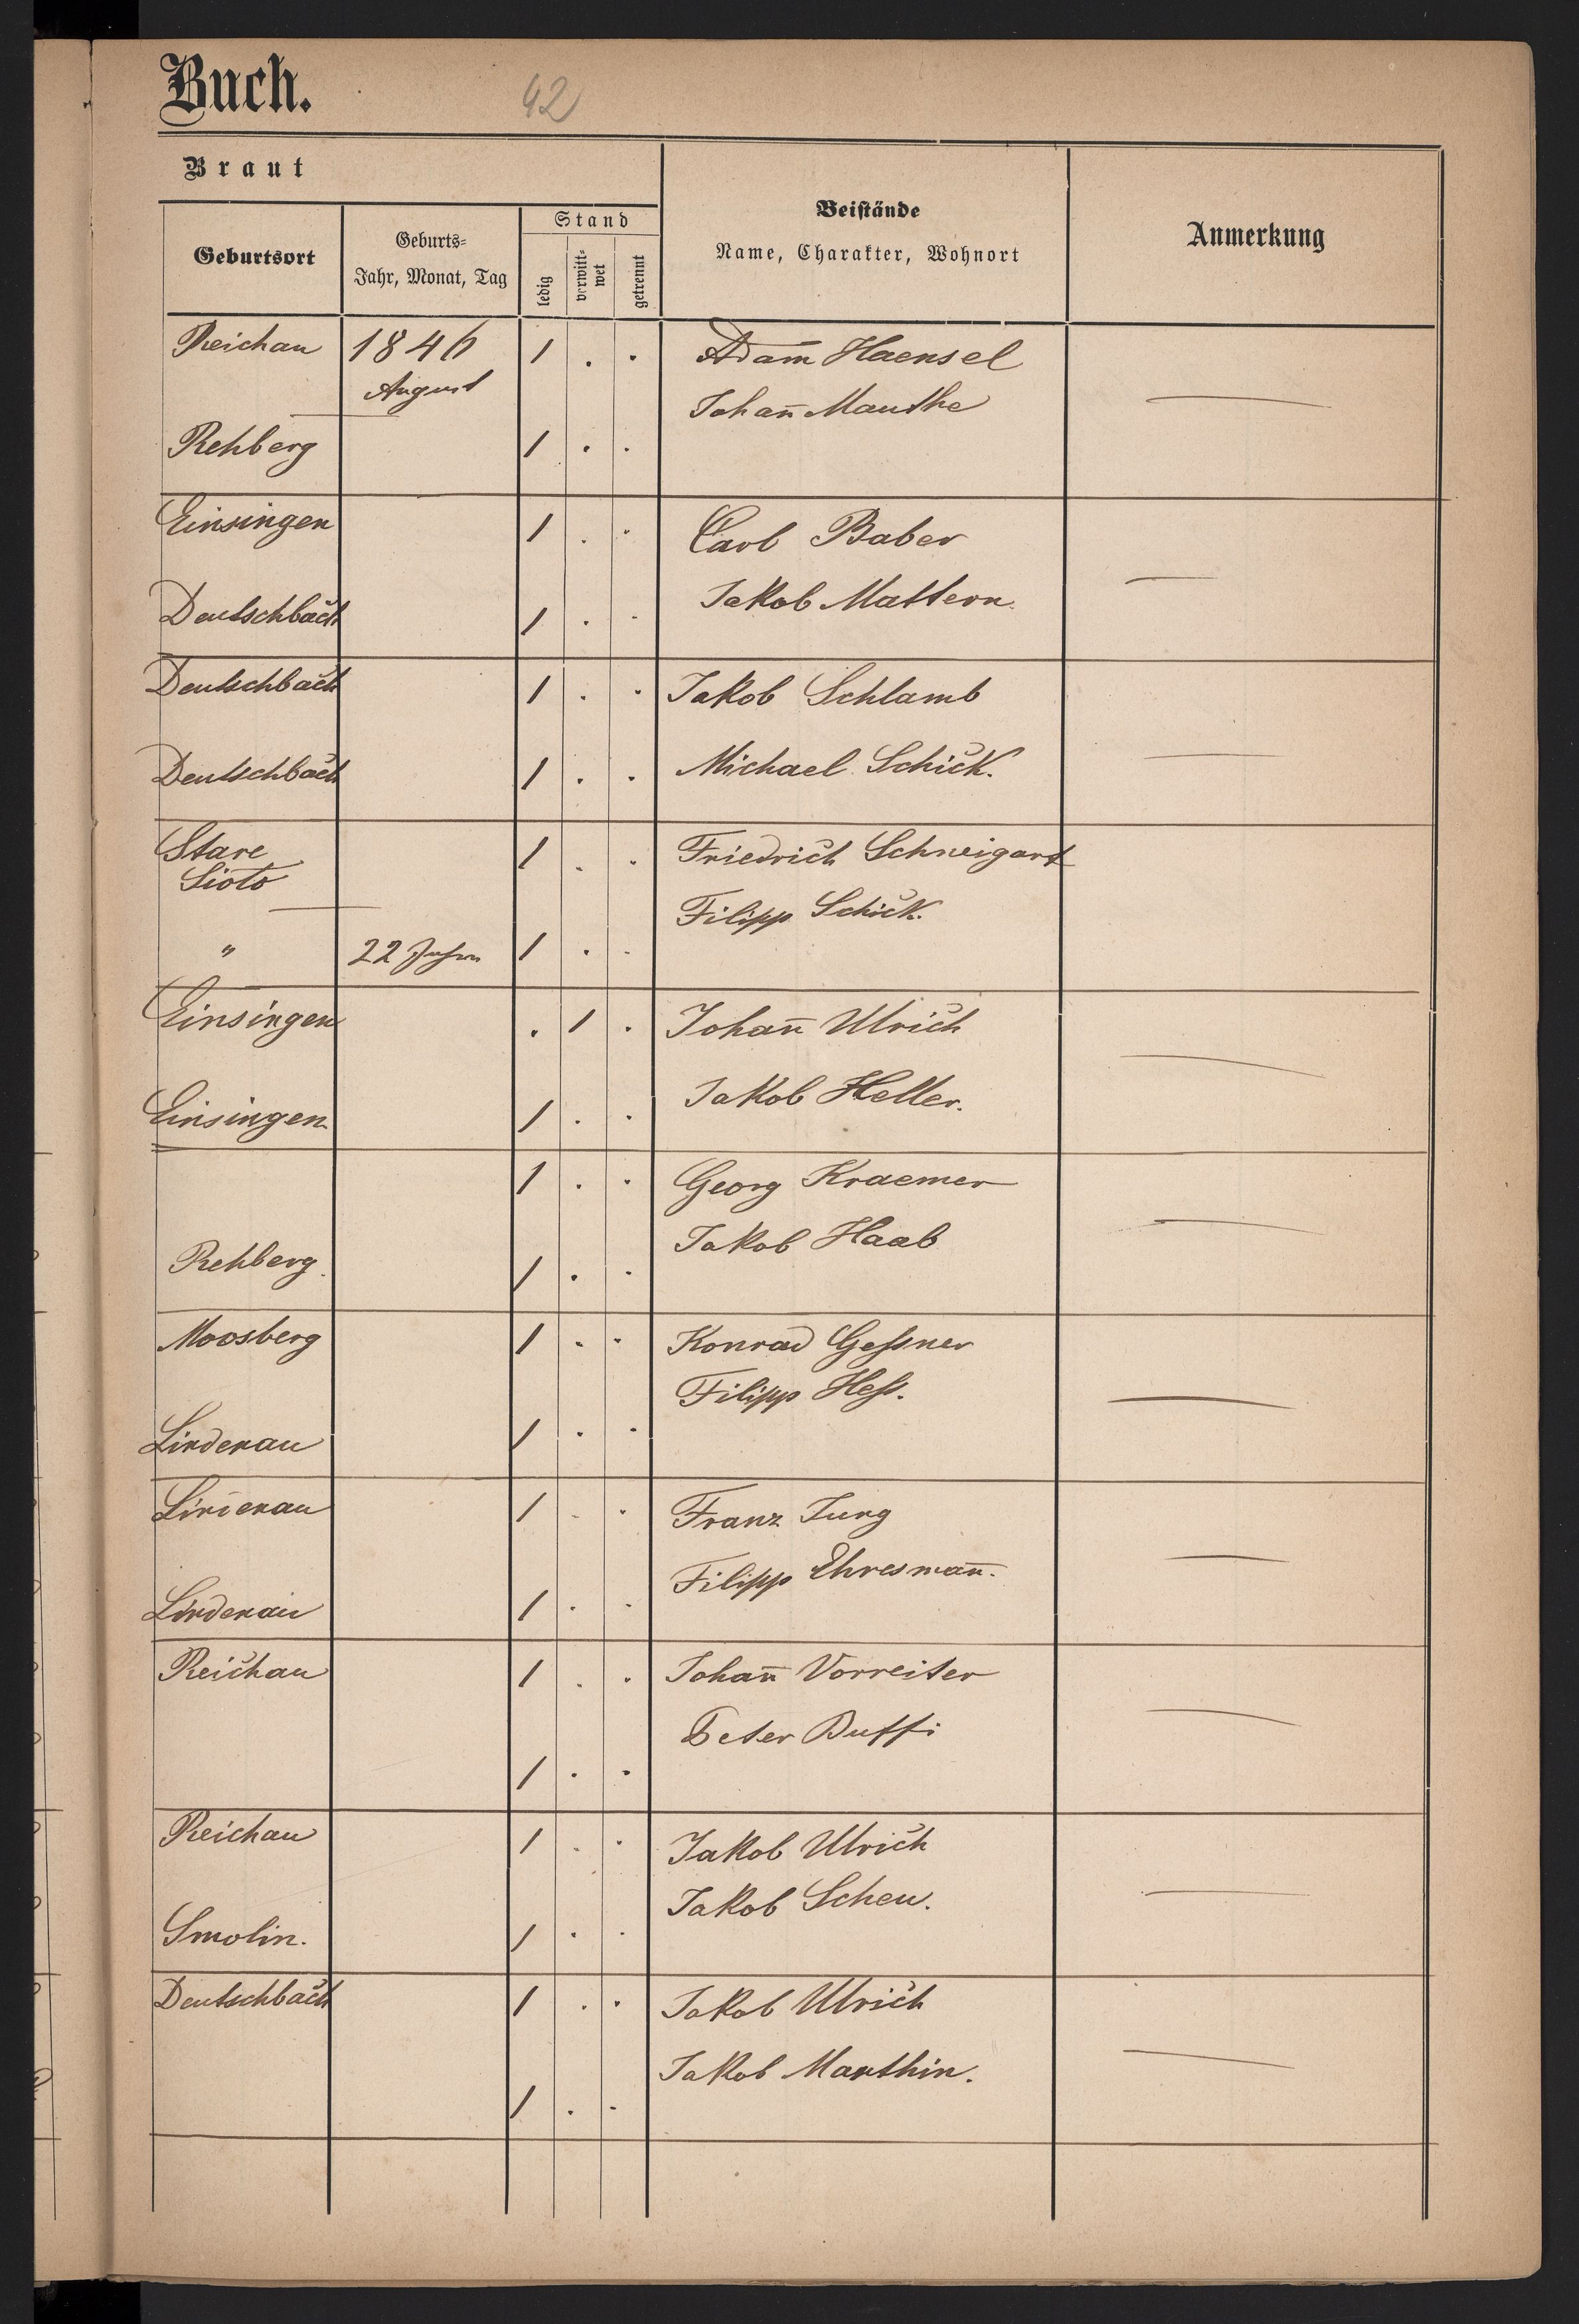 Buch.
42
Braut
Geburtsort
Geburts-
Jahr, Monat, Tag
Stand
ledig
verwitt-
wet
getrennt
Beistände
Name, Charakter, Wohnort
Anmerkung
Reichau 1846 1 . . Adam̄ Haensel
August
Johan̄ Mauthe
Rehberg 1 . .
Einsingen 1 . . Carl Baber
Jakob Mattern
Deutschbach 1 . .
Deutschbach 1 . . Jakob Schlamb
Deutschbach 1 . . Michael Schick.
Stare 1 . . Friedrich Schweigart
Sioło
Filipp Schick.
" 22 Jahre 1 . .
Einsingen . 1 . Johan̄ Ulrich
Jakob Heller.
Einsingen 1 . .
1 . . Georg Kraemer
Jakob Haab
Rehberg. 1 . .
Moosberg 1 . . Konrad Geſsner
Filipp Heſs.
Lindenau 1 . .
Lindenau 1 . . Franz Jung
Filipp Ehresman̄.
Lindenau 1 . .
Reichau 1 . . Johan̄ Vorreiter
Peter Buffi
1 . .
Reichau 1 . . Jakob Ulrich
Jakob Scheu.
Smolin. 1 . .
Deutschbach 1 . . Jakob Ulrich
Jakob Manthin.
1 . .